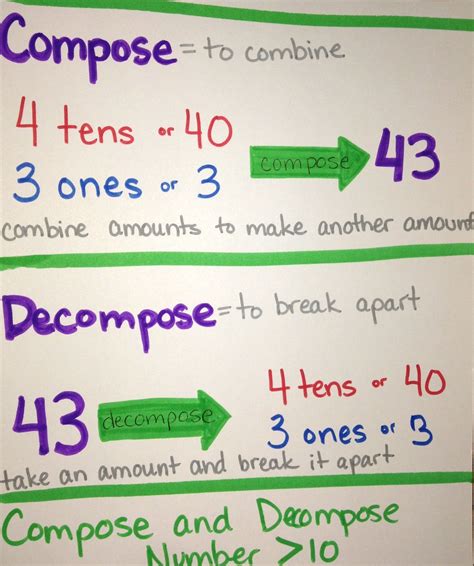 Compose = to combine
4 tens or 40
compose 43
3 ones or 3
combine amounts to make another amount
Decompose = to break apart
4 tens or 40
43 decompose
3 ones or 3
take an amount and break it apart
Compose and Decompose
Number >10